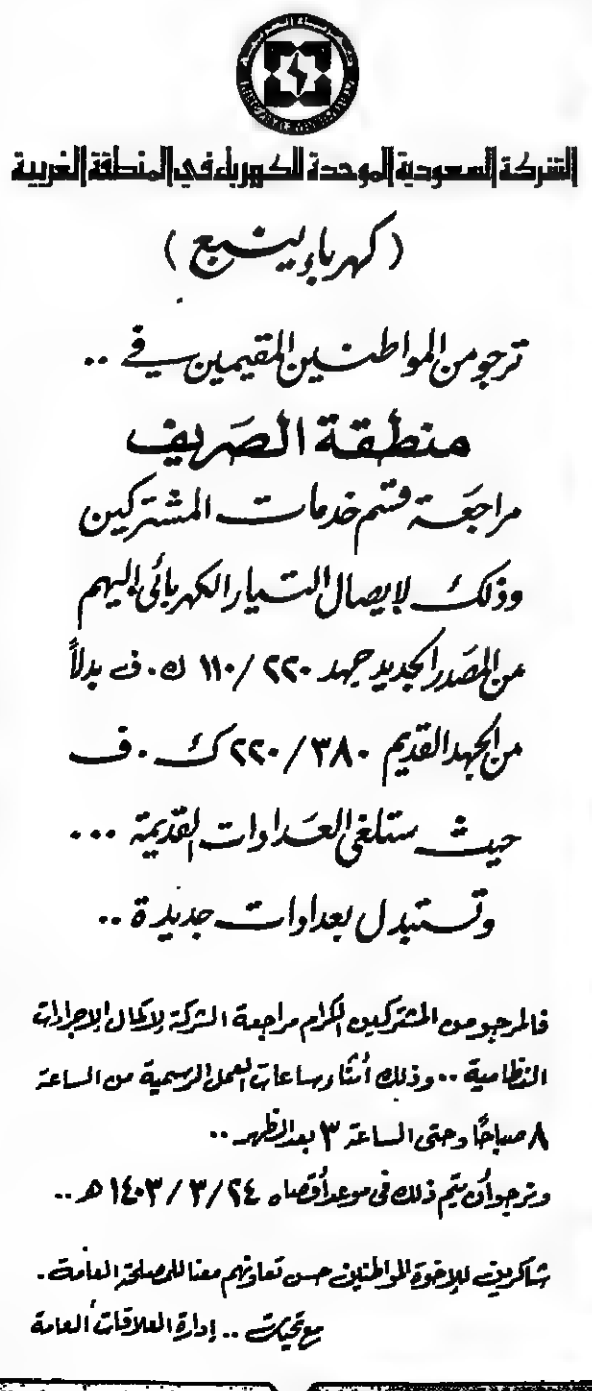 الشركة السعودية الموحدة للكهرباء في المنطقة الغربية
( كهرباء ينبع )
ترجو من المواطنين المقيمين في ..
منطقة الصريف
مراجعة قسم خدمات المشتركين
وذلك لإيصال التيار الكهربائي إليهم
من المصدر الجديد جهد ٢٢٠ / ١١٠ ك . ف بدلاً
من الجهد القديم ٣٨٠ / ٢٢٠ ك . ف
حيث ستلغى العدادات القديمة ...
وتستبدل بعدادات جديدة ..
فالمرجو من المشتركين الكرام مراجعة الشركة لإكمال الإجراءات
النظامية .. وذلك أثناء ساعات العمل الرسمية من الساعة
٨ صباحًا وحتى الساعة ٣ بعد الظهر ..
ونرجو أن يتم ذلك في موعد أقصاه ٢٤ / ٣ / ١٤٠٣ هـ ..
شاكرين للإخوة المواطنين حسن تعاونهم معنا للمصلحة العامة .
مع تحيات .. إدارة العلاقات العامة